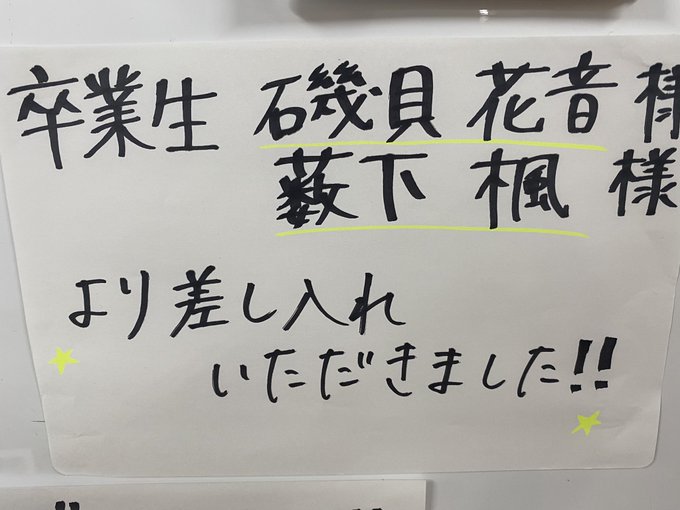 卒業生 磯貝 花音 様
藪下 楓 様
より差し入れ
いただきました!!